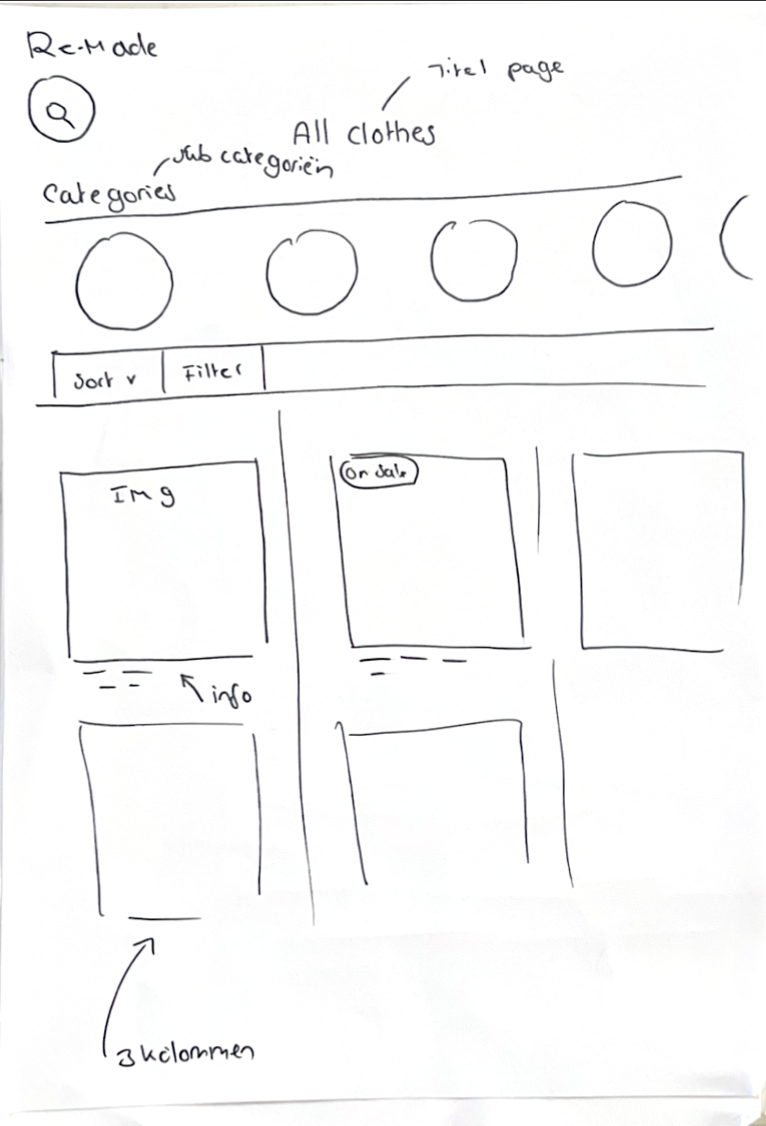 Re-Made
Titel page
All clothes
sub categoriën
Categories
Sort v
Filter
Img
On Sale
info
3 kolommen